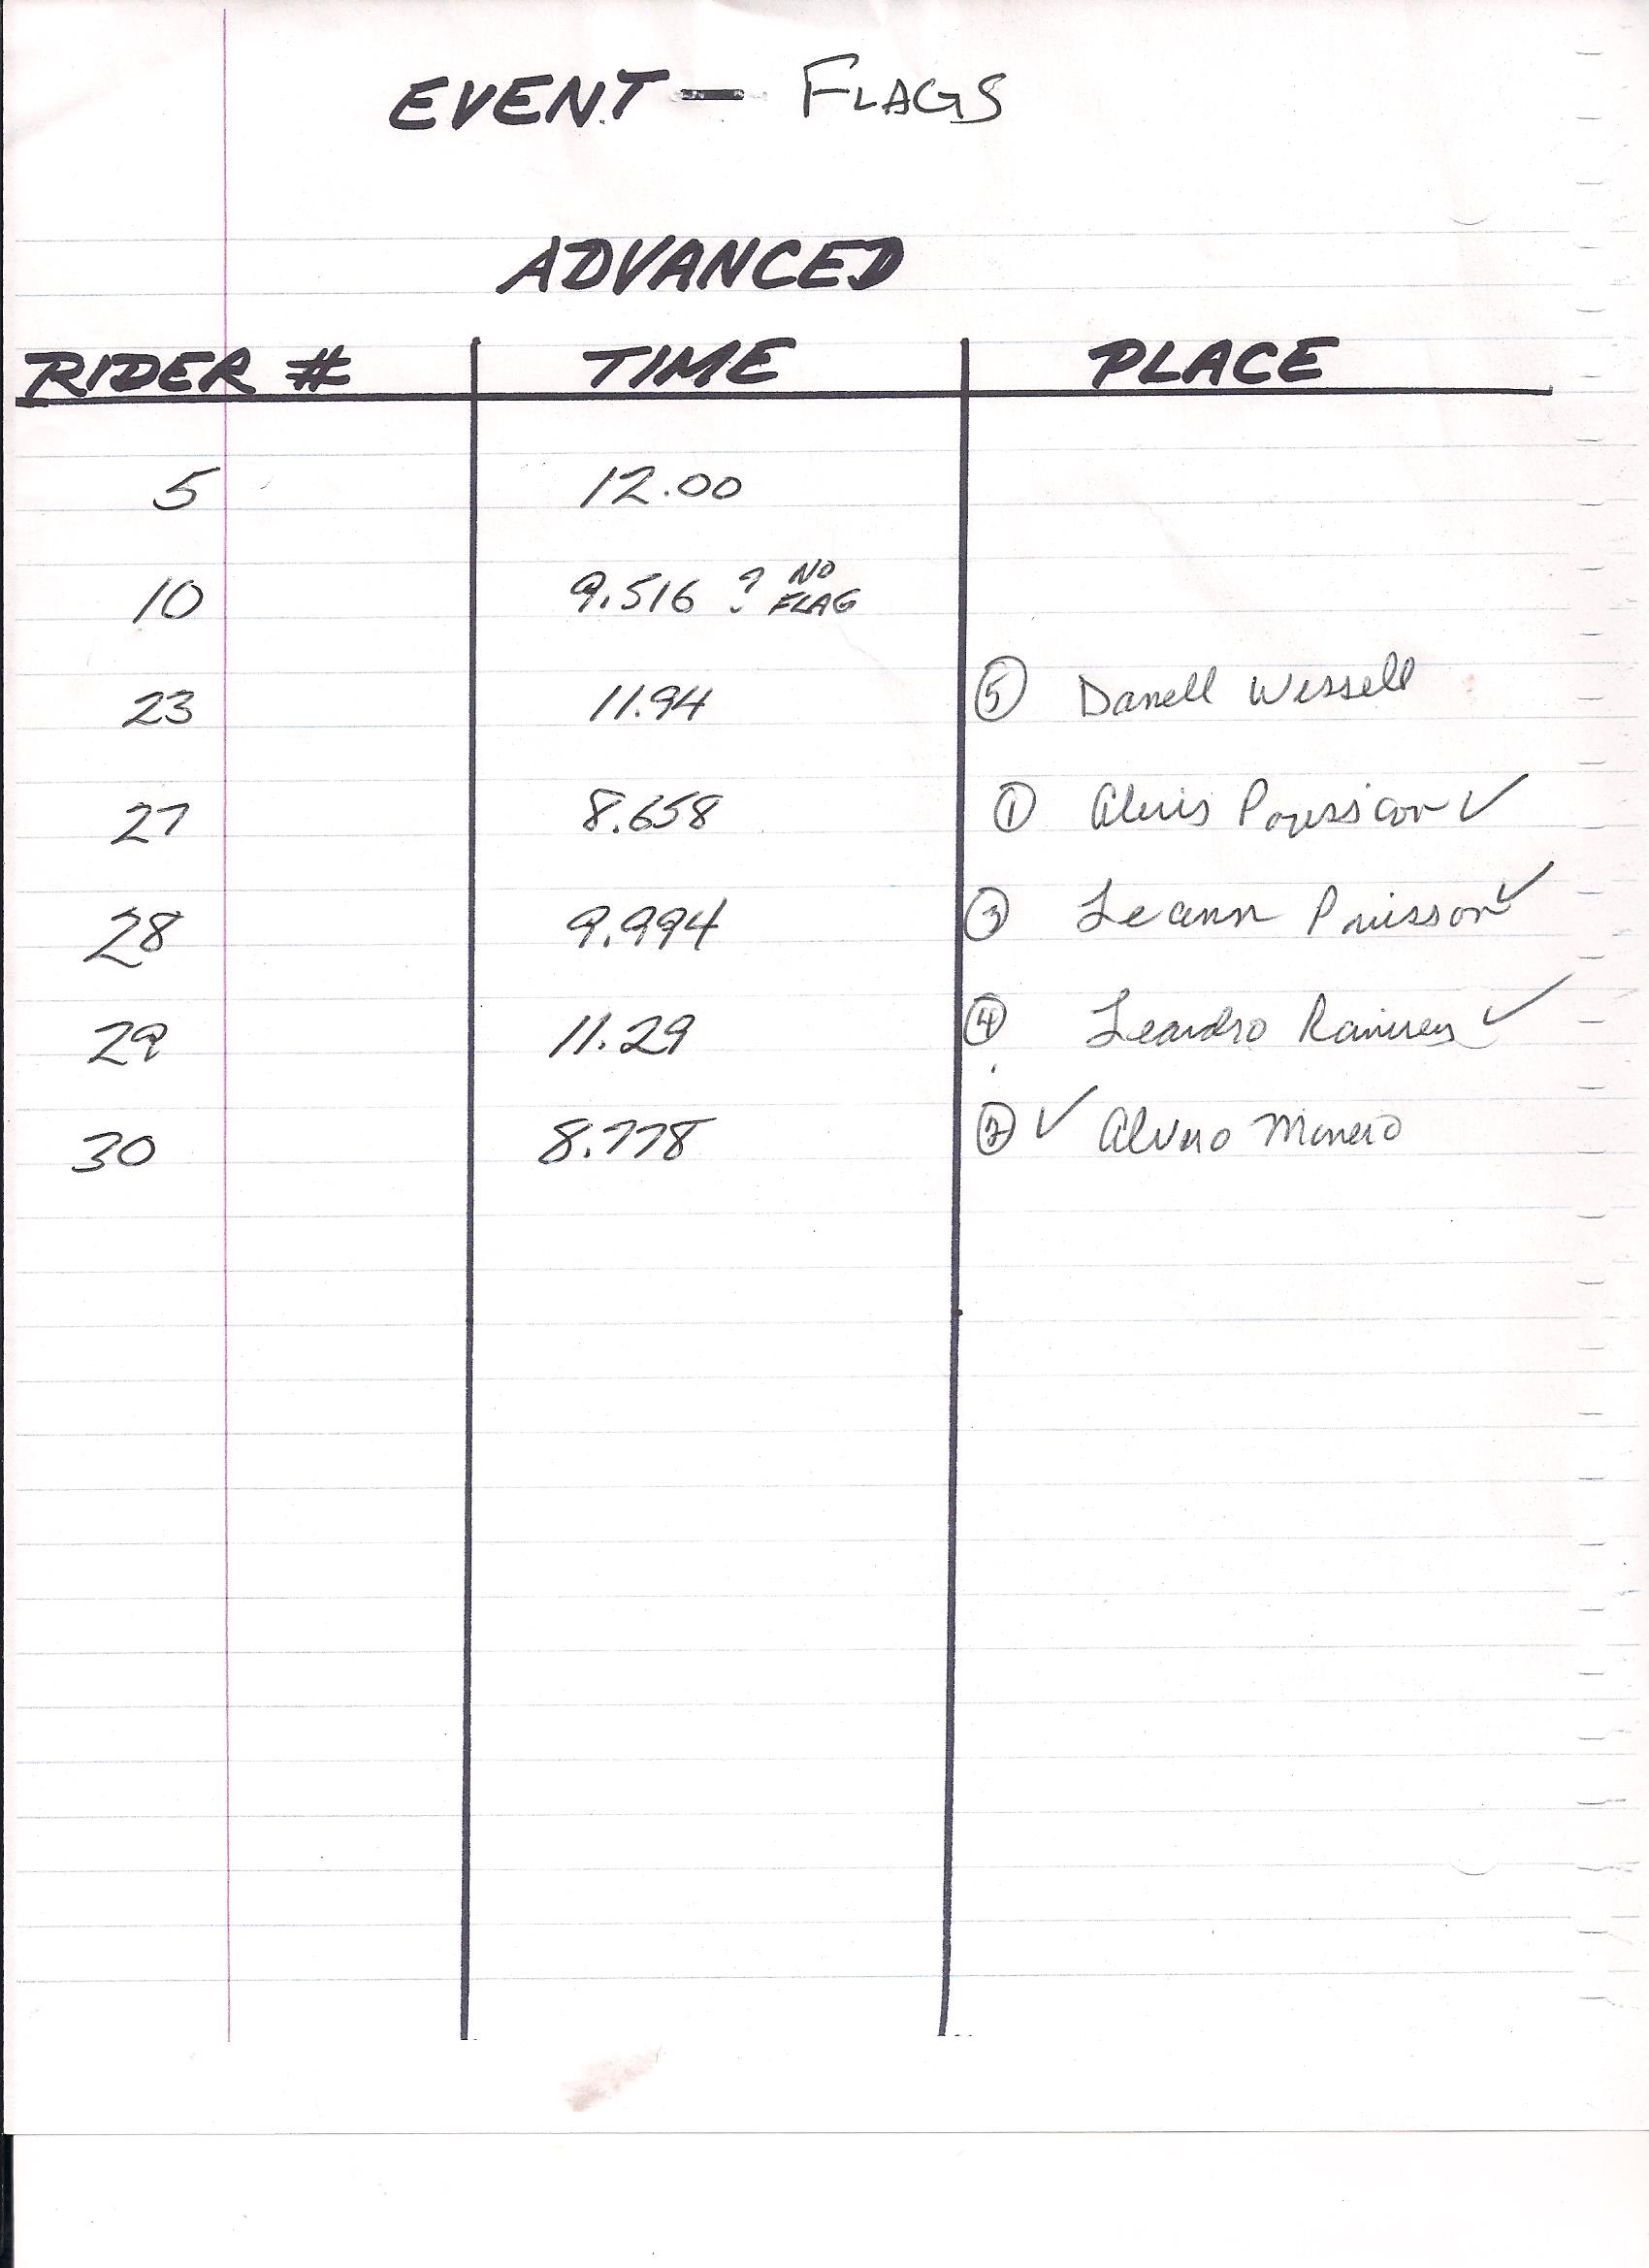 EVENT - FLAGS
ADVANCED
RIDER # TIME PLACE
5 12.00
10 9.516 ? NO FLAG
23 11.94 ⑤ Danell Wessell
27 8.658 ① ✓
28 9.994 ③ Leann ✓
29 11.29 ④ Leandro Ramirez ✓
30 8.778 ② ✓ Alvero